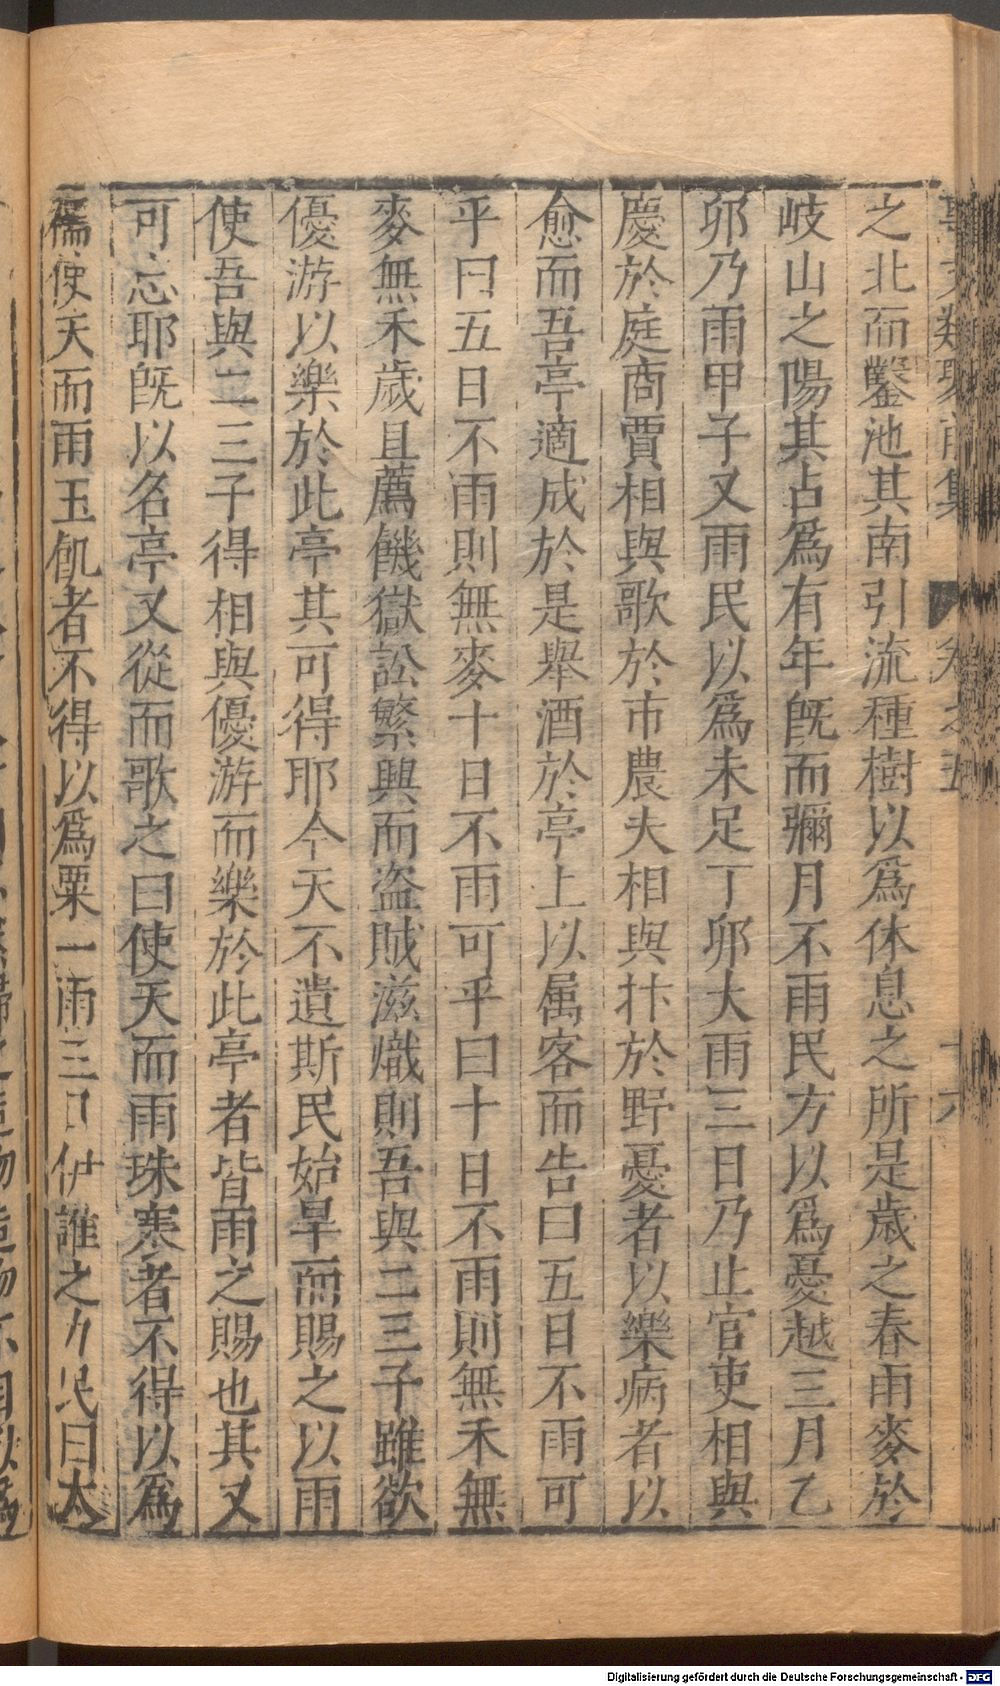 事文類聚前集 卷之五 十六
之北而鑿池其南引流種樹以爲休息之所是歲之春雨麥於
岐山之陽其占爲有年旣而彌月不雨民方以爲憂越三月乙
卯乃雨甲子又雨民以爲未足丁卯大雨三日乃止官吏相與
慶於庭商賈相與歌於市農夫相與抃於野憂者以樂病者以
愈而吾亭適成於是舉酒於亭上以属客而告曰五日不雨可
乎曰五日不雨則無麥十日不雨可乎曰十日不雨則無禾無
麥無禾歲且薦饑獄訟繁興而盗賊滋熾則吾與二三子雖欲
優游以樂於此亭其可得耶今天不遺斯民始旱而賜之以雨
使吾與二三子得相與優游而樂於此亭者皆雨之賜也其又
可忘耶旣以名亭又從而歌之曰使天而雨珠寒者不得以爲
襦使天而雨玉飢者不得以爲粟一雨三日伊誰之力民曰太
Digitalisierung gefördert durch die Deutsche Forschungsgemeinschaft - DFG